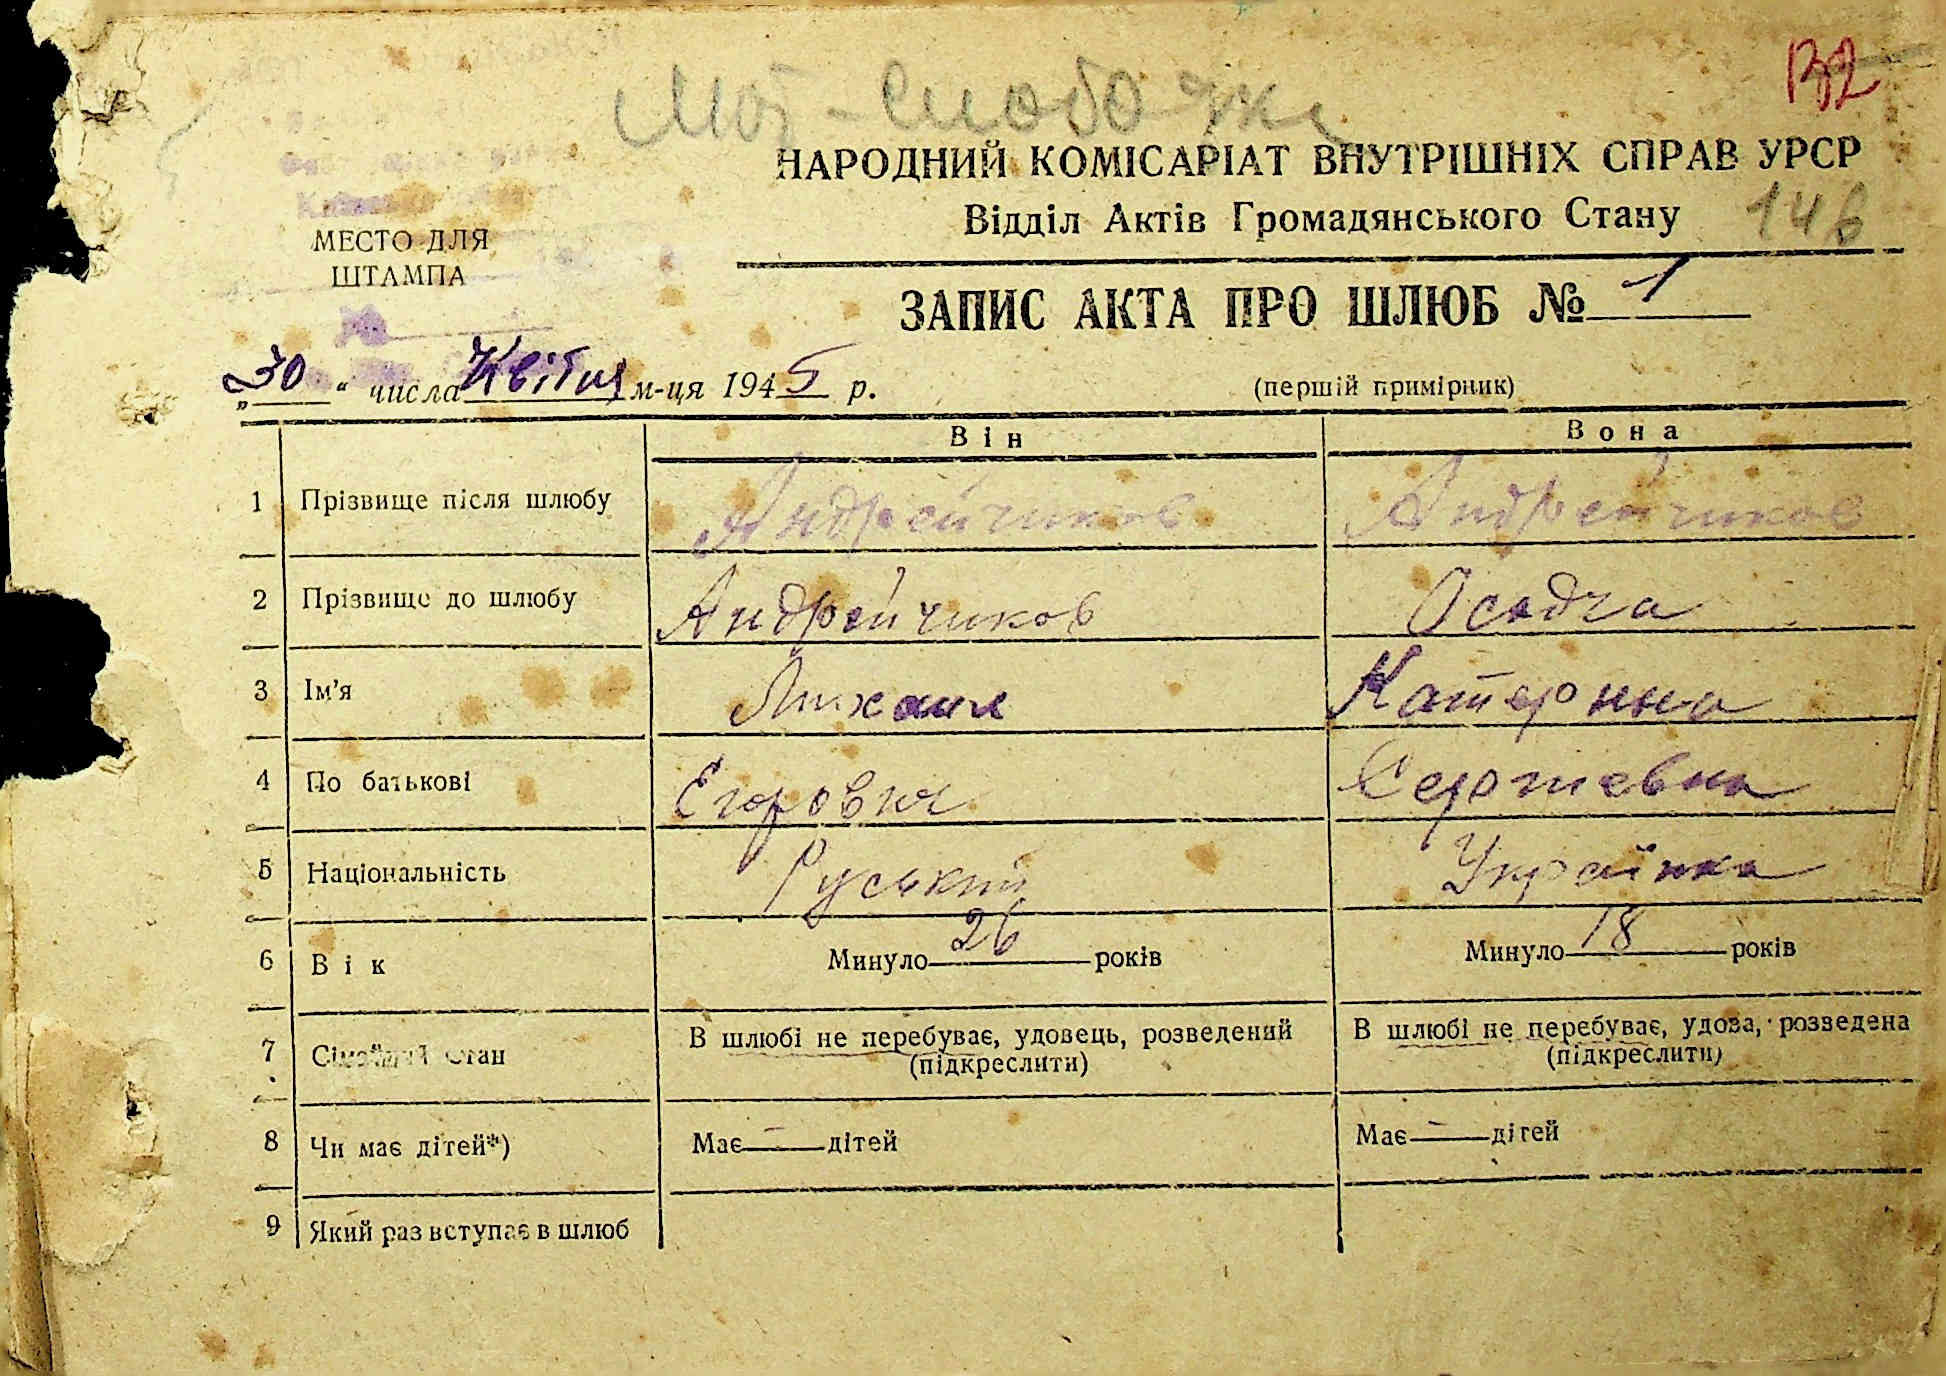 132
Мот-Слобо
НАРОДНИЙ КОМІСАРІАТ ВНУТРІШНІХ СПРАВ УРСР
Відділ Актів Громадянського Стану
146
МЕСТО ДЛЯ
ШТАМПА
ЗАПИС АКТА ПРО ШЛЮБ № 1
„30“ числа Квітня м-ця 1945 р.
(першій примірник)
Він Вона
1 Прізвище після шлюбу Андрейчиков Андрейчиков
2 Прізвище до шлюбу Андрейчиков Осадча
3 Ім'я Михаил Катерина
4 По батькові Егорович Сергіевна
5 Національність Руський Українка
6 Вік Минуло 26 років Минуло 18 років
7 Сімейний стан В шлюбі не перебуває, удовець, розведений В шлюбі не перебуває, удова, розведена
(підкреслити) (підкреслити)
8 Чи має дітей*) Має — дітей Має — дітей
9 Який раз вступає в шлюб